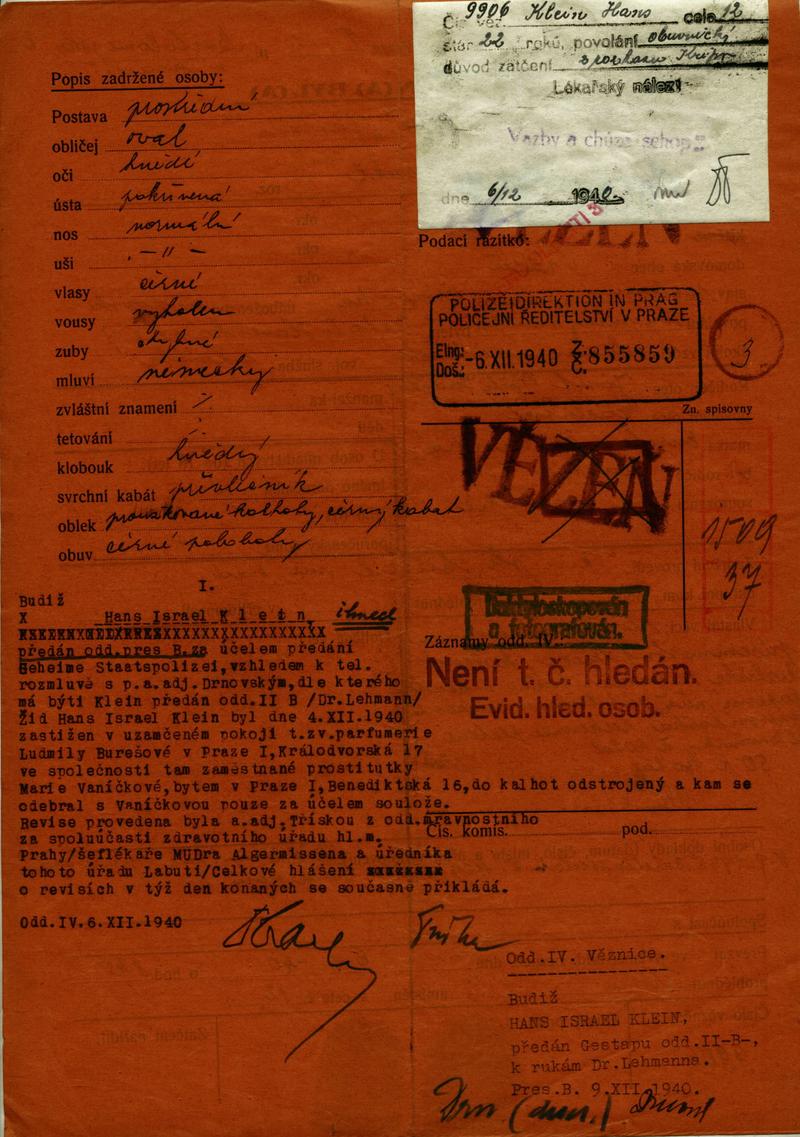 Čís. věz. 9906 Klein Hans cela 12
stár 22 roků, povolání obuvnický
důvod zatčení
Lékařský nález:
Vazby a chůze schop
dne 6/12 1940.
Popis zadržené osoby:
Postava prostřední
obličej oval
oči hnědé
ústa pokřivená
nos normální
uši -"-
vlasy černé
vousy vyholen
zuby chybné
mluví německy
zvláštní znamení
tetování
klobouk hnědý
svrchní kabát převlečník
oblek proužkované kalhoty, černý kabát
obuv černé polobotky
Podací razítko:
POLIZEIDIREKTION IN PRAG
POLICEJNÍ ŘEDITELSTVÍ V PRAZE
Elng: Doš.: -6.XII.1940 Z. Č. 855859
3
Zn. spisovny
VĚZEŇ
1509
37
Daktyloskopován
a fotografován.
Záznamy odd. IV.
Není t. č. hledán.
Evid. hled. osob.
I.
Budiž
X Hans Israel Klein, ihned
předán odd.pres B.za účelem předání
Geheime Staatspolizei,vzhledem k tel.
rozmluvě s p.a.adj.Drnovským,dle kterého
má býti Klein předán odd.II B /Dr.Lehmann/
Žid Hans Israel Klein byl dne 4.XII.1940
zastižen v uzamčeném pokoji t.zv.parfumerie
Ludmily Burešové v Praze I,Králodvorská 17
ve společnosti tam zaměstnané prostitutky
Marie Vaníčkové,bytem v Praze I,Benediktská 16,do kalhot odstrojený a kam se
odebral s Vaníčkovou pouze za účelem soulože.
Revise provedena byla a.adj.Třískou z odd.mravnostního
za spoluúčasti zdravotního úřadu hl.m.
Prahy/šeflékaře MUDra Algermissena a úředníka
tohoto úřadu Labutí/Celkové hlášení
o revisích v týž den konaných se současně přikládá.
Čís. komis. pod.
Odd.IV.6.XII.1940
Odd.IV. Věznice.
Budiž
HANS ISRAEL KLEIN,
předán Gestapu odd.II-B-,
k rukám Dr.Lehmanna.
Pres.B. 9.XII.1940.